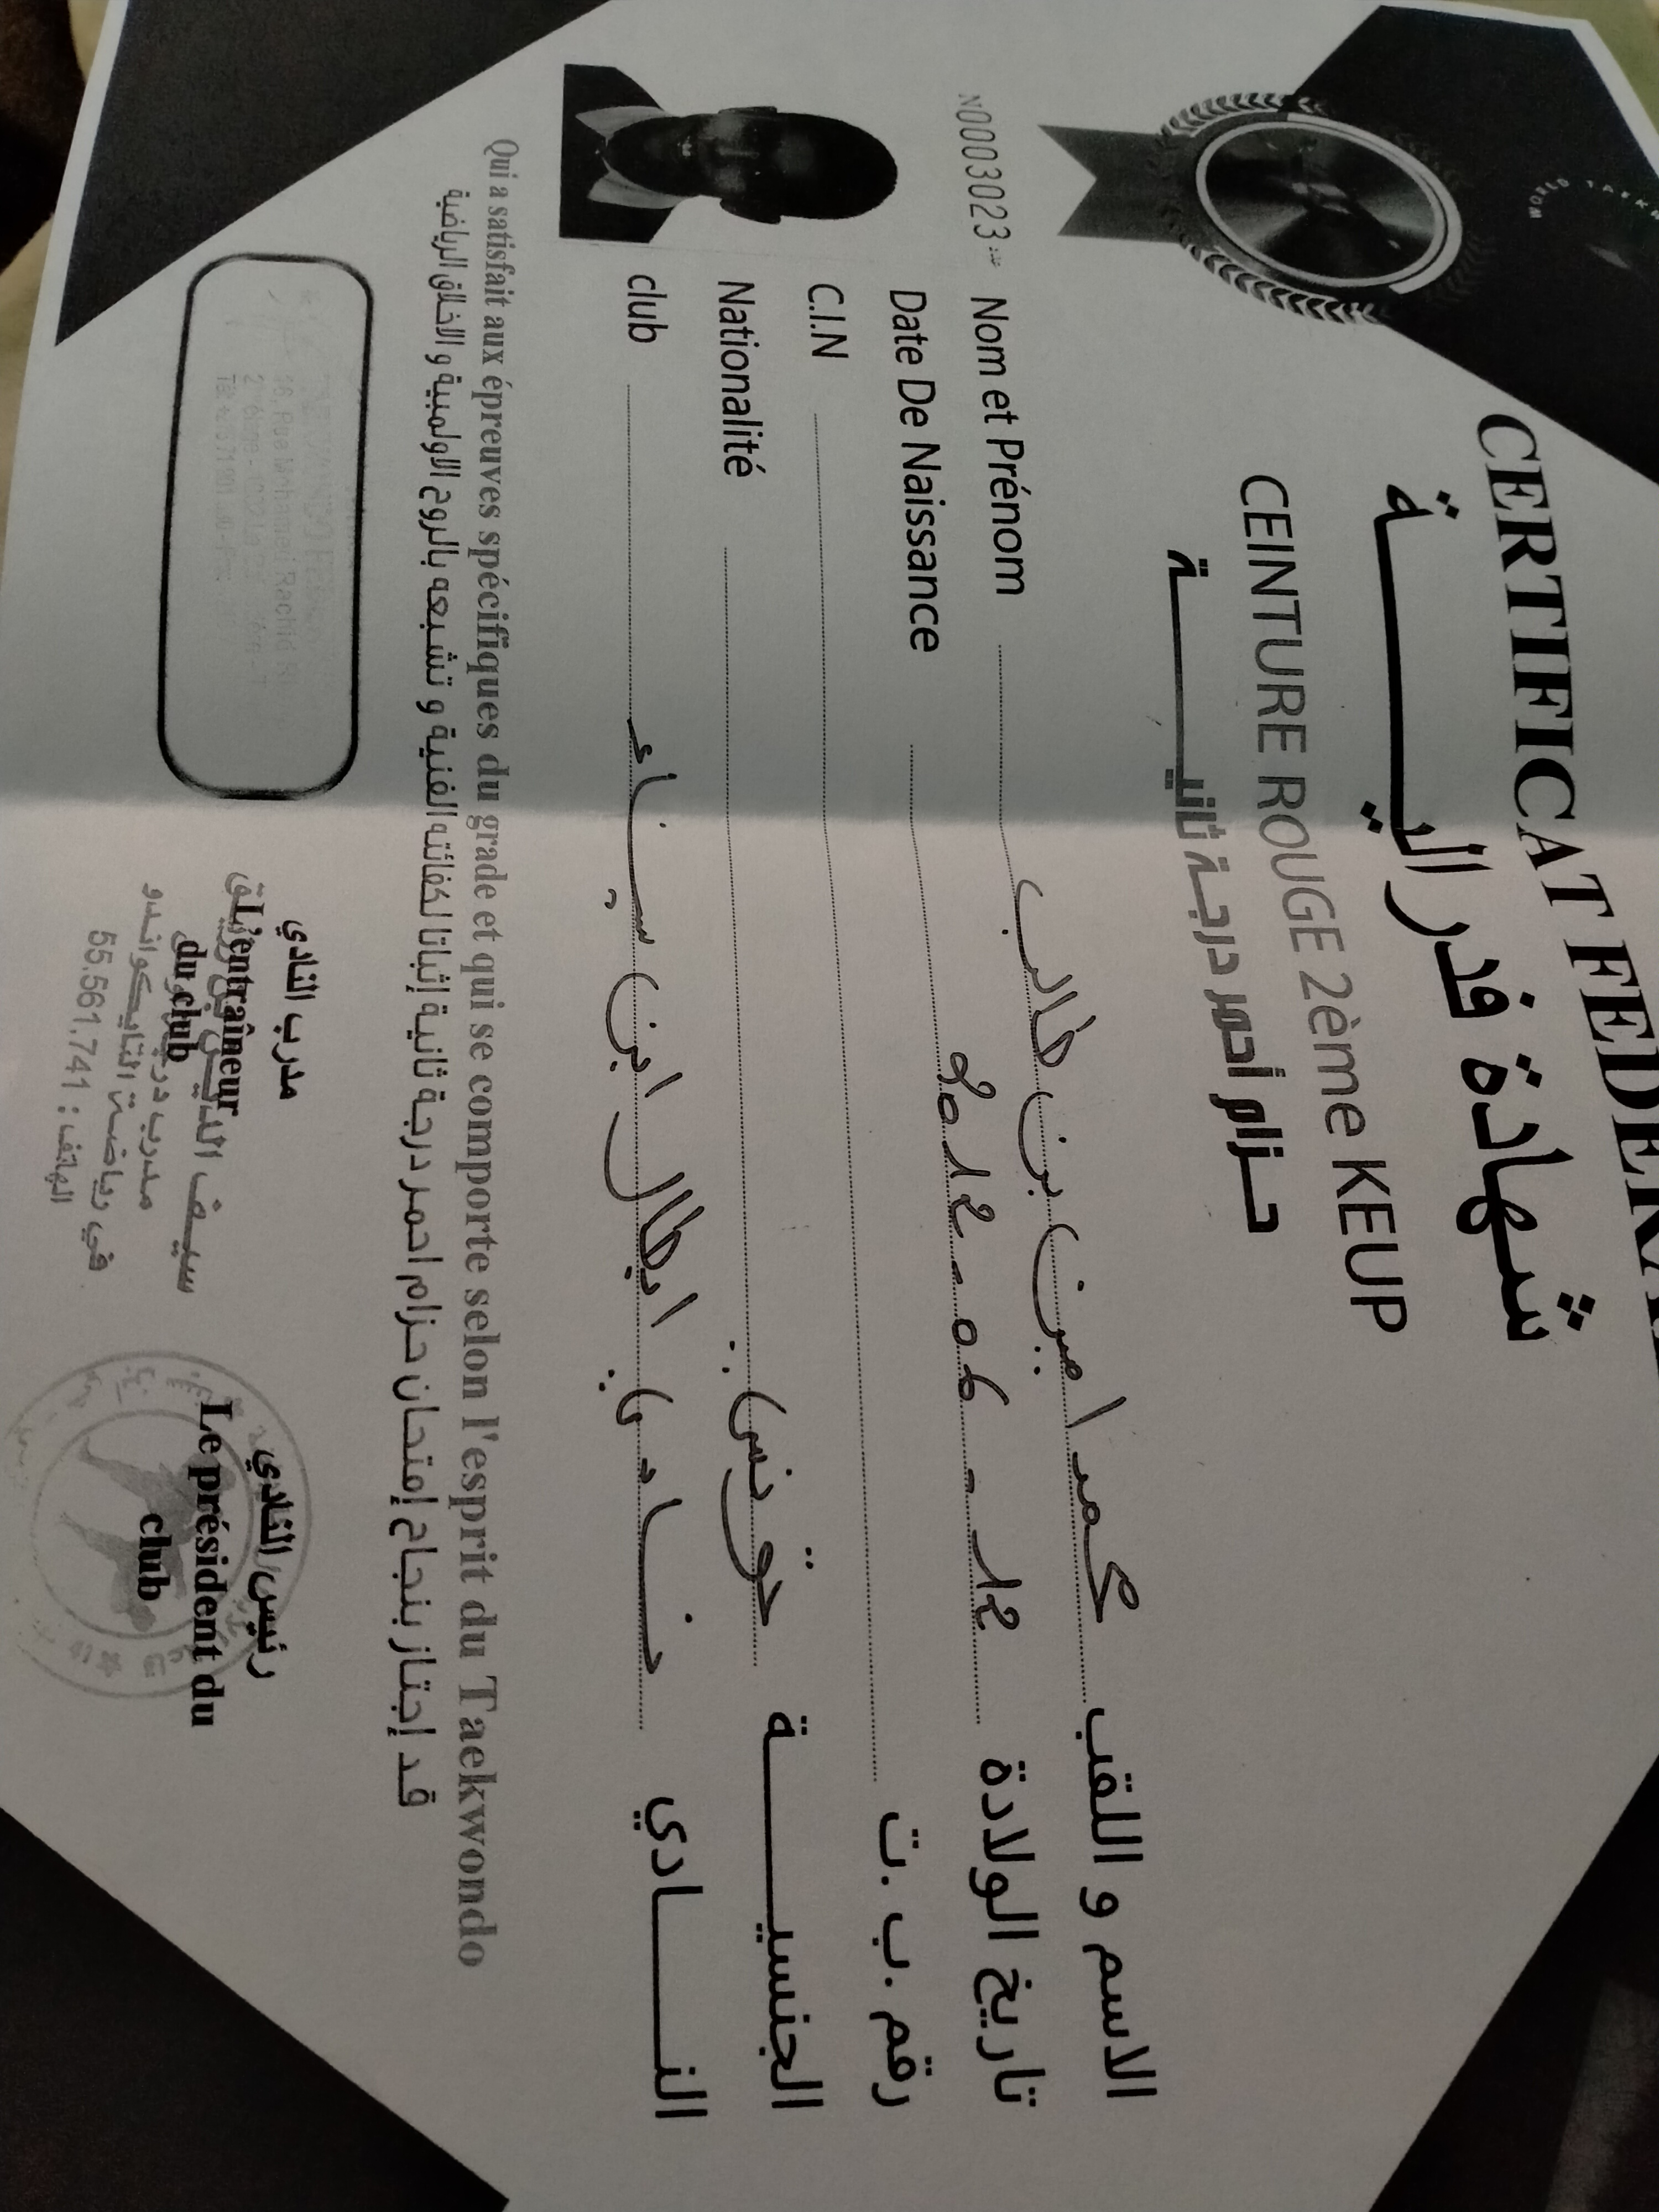 CERTIFICAT FEDERA
شهادة فدراليـــــة
CEINTURE ROUGE 2ème KEUP
حزام أحمر درجة ثانيـــــة
N0003023
Nom et Prénom محمد امين بن طالب الاسم و اللقب
Date De Naissance تاريخ الولادة
C.I.N رقم .ب .ت
Nationalité تونسي الجنسيـــــة
club نادي ابطال ابن سيناء النـــــادي
Qui a satisfait aux épreuves spécifiques du grade et qui se comporte selon l'esprit du Taekwondo
قد إجتاز بنجاح إمتحان حزام احمر درجة ثانية إثباتا لكفائته الفنية و تشبعه بالروح الاولمبية و الاخلاق الرياضية
مدرب النادي
L'entraîneur
du club
سيف الدين
مدرب
في رياضة التايكواندو
الهاتف : 55.561.741
رئيس النادي
Le président du
club
Rue Mohamed Rachid